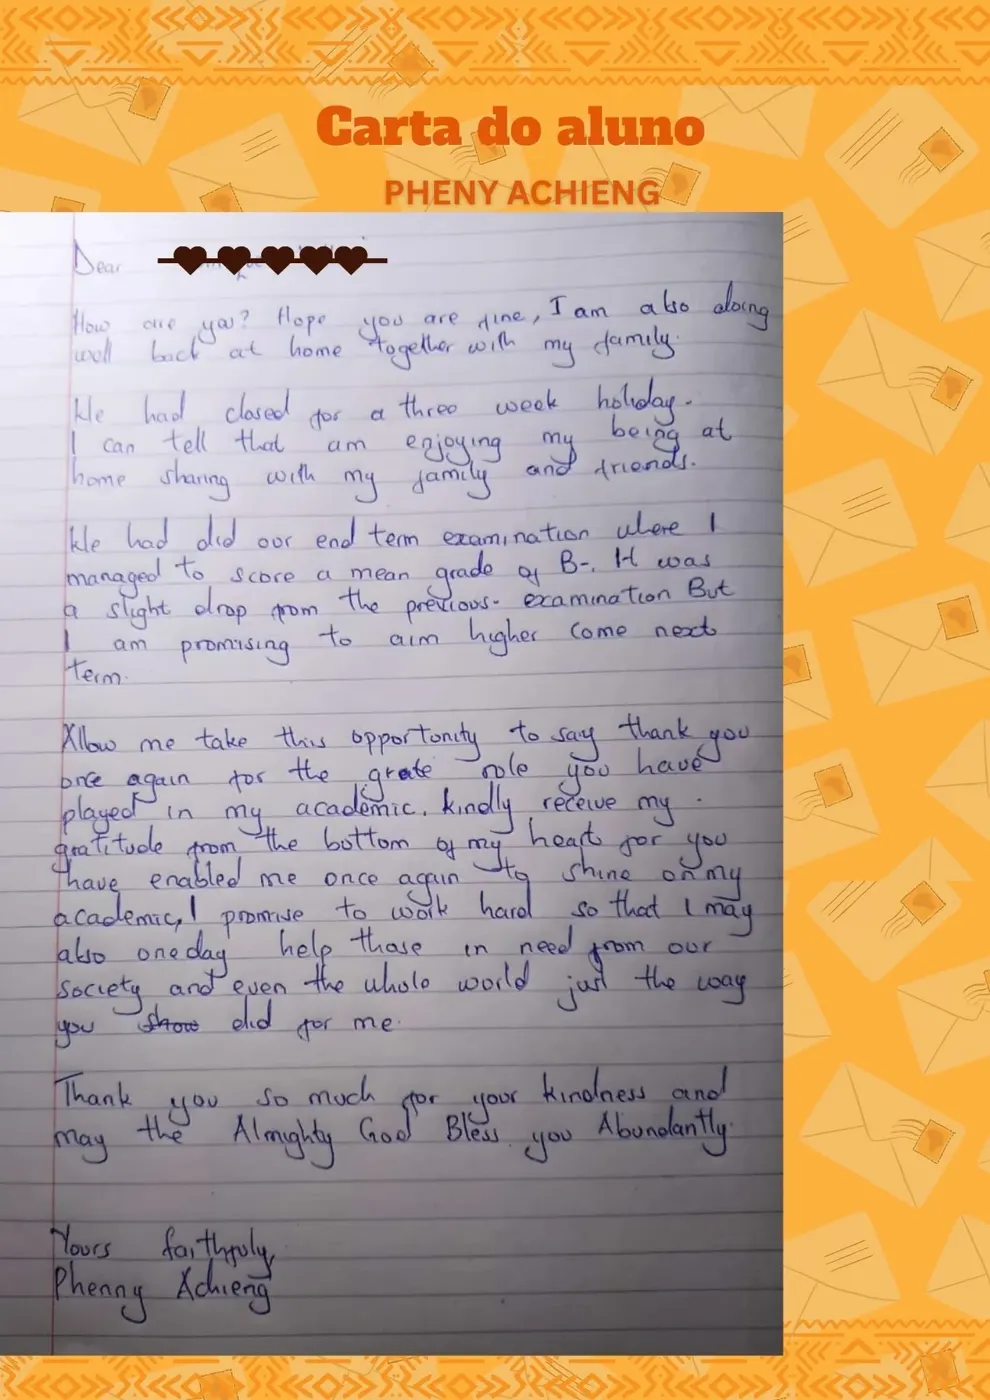 Carta do aluno
PHENY ACHIENG
Dear
How are you? Hope you are fine, I am also doing
well back at home together with my family.
We had closed for a three week holiday.
I can tell that am enjoying my being at
home sharing with my family and friends.
We had did our end term examination where I
managed to score a mean grade of B-. It was
a slight drop from the previous- examination But
I am promising to aim higher come next
term.
Allow me take this opportunity to say thank you
once again for the grate role you have
played in my academic. kindly receive my
gratitude from the bottom of my heart for you
have enabled me once again to shine on my
academic, I promise to work hard so that I may
also oneday help those in need from our
society and even the whole world just the way
you show did for me.
Thank you so much for your kindness and
may the Almighty God Bless you Abundantly.
Yours faithfuly,
Phenny Achieng